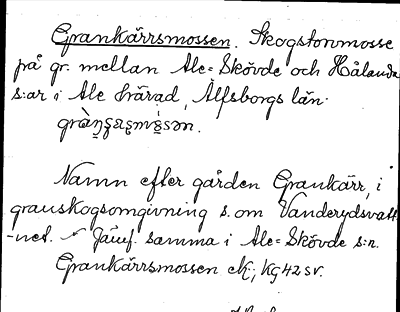 Grankärrsmossen. Skogstorvmosse
på gr. mellan Ale=Skövde och Hålanda
s:ar i Ale härad, Älfsborgs län.
Namn efter gården Grankärr, i
granskogsomgivning s. om Vanderydsvatt-
-net. Jämf. samma i Ale=Skövde s:n.
Grankärrsmossen ek; Kg 42 sv.